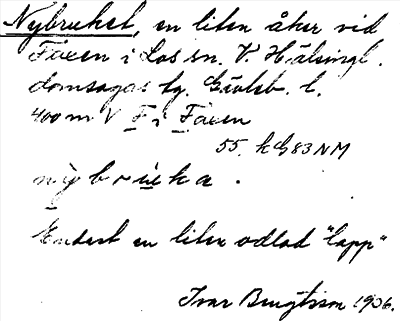 Nybruket, en liten åker vid
Faxen i Los sn. V. Hälsingl.
domsagas tg. Gävleb. l.
400 m V F i Faxen
55. kG 83 NM
nybruka.
Endast en liten odlad "lapp"
Ivar Bengtsson 1906.